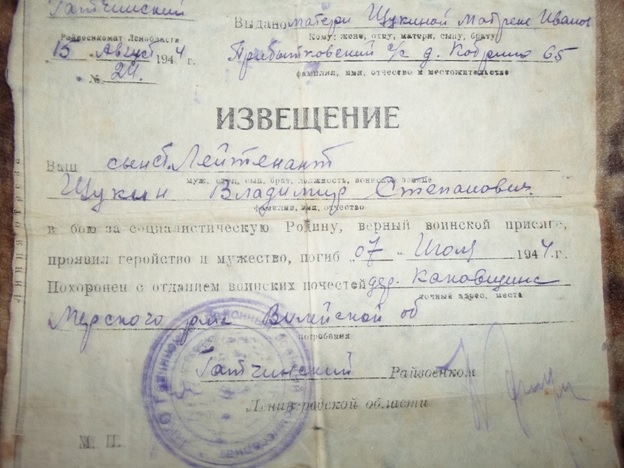 Гатчинский
Выдано матери Щукиной Матрене Иванов
Кому: жене, отцу, матери, сыну, брату
Райвоенкомат Ленобласти
15 Август 1944 г.
Прибытковский с/с д. Кобрино 65
№ 24.
фамилия, имя, отчество и местожительство
ИЗВЕЩЕНИЕ
Ваш сын Лейтенант
муж, отец, сын, брат, должность, воинское звание
Щукин Владимир Степанович
фамилия, имя, отчество
в бою за социалистическую Родину, верный воинской присяге,
проявил геройство и мужество, погиб 07 - Июля 1944 г.
Похоронен с отданием воинских почестей дер.
точный адрес, места
Мерского рай Вилейской об
погребения
Гатчинский Райвоенком
Ленинградской области
М. П.